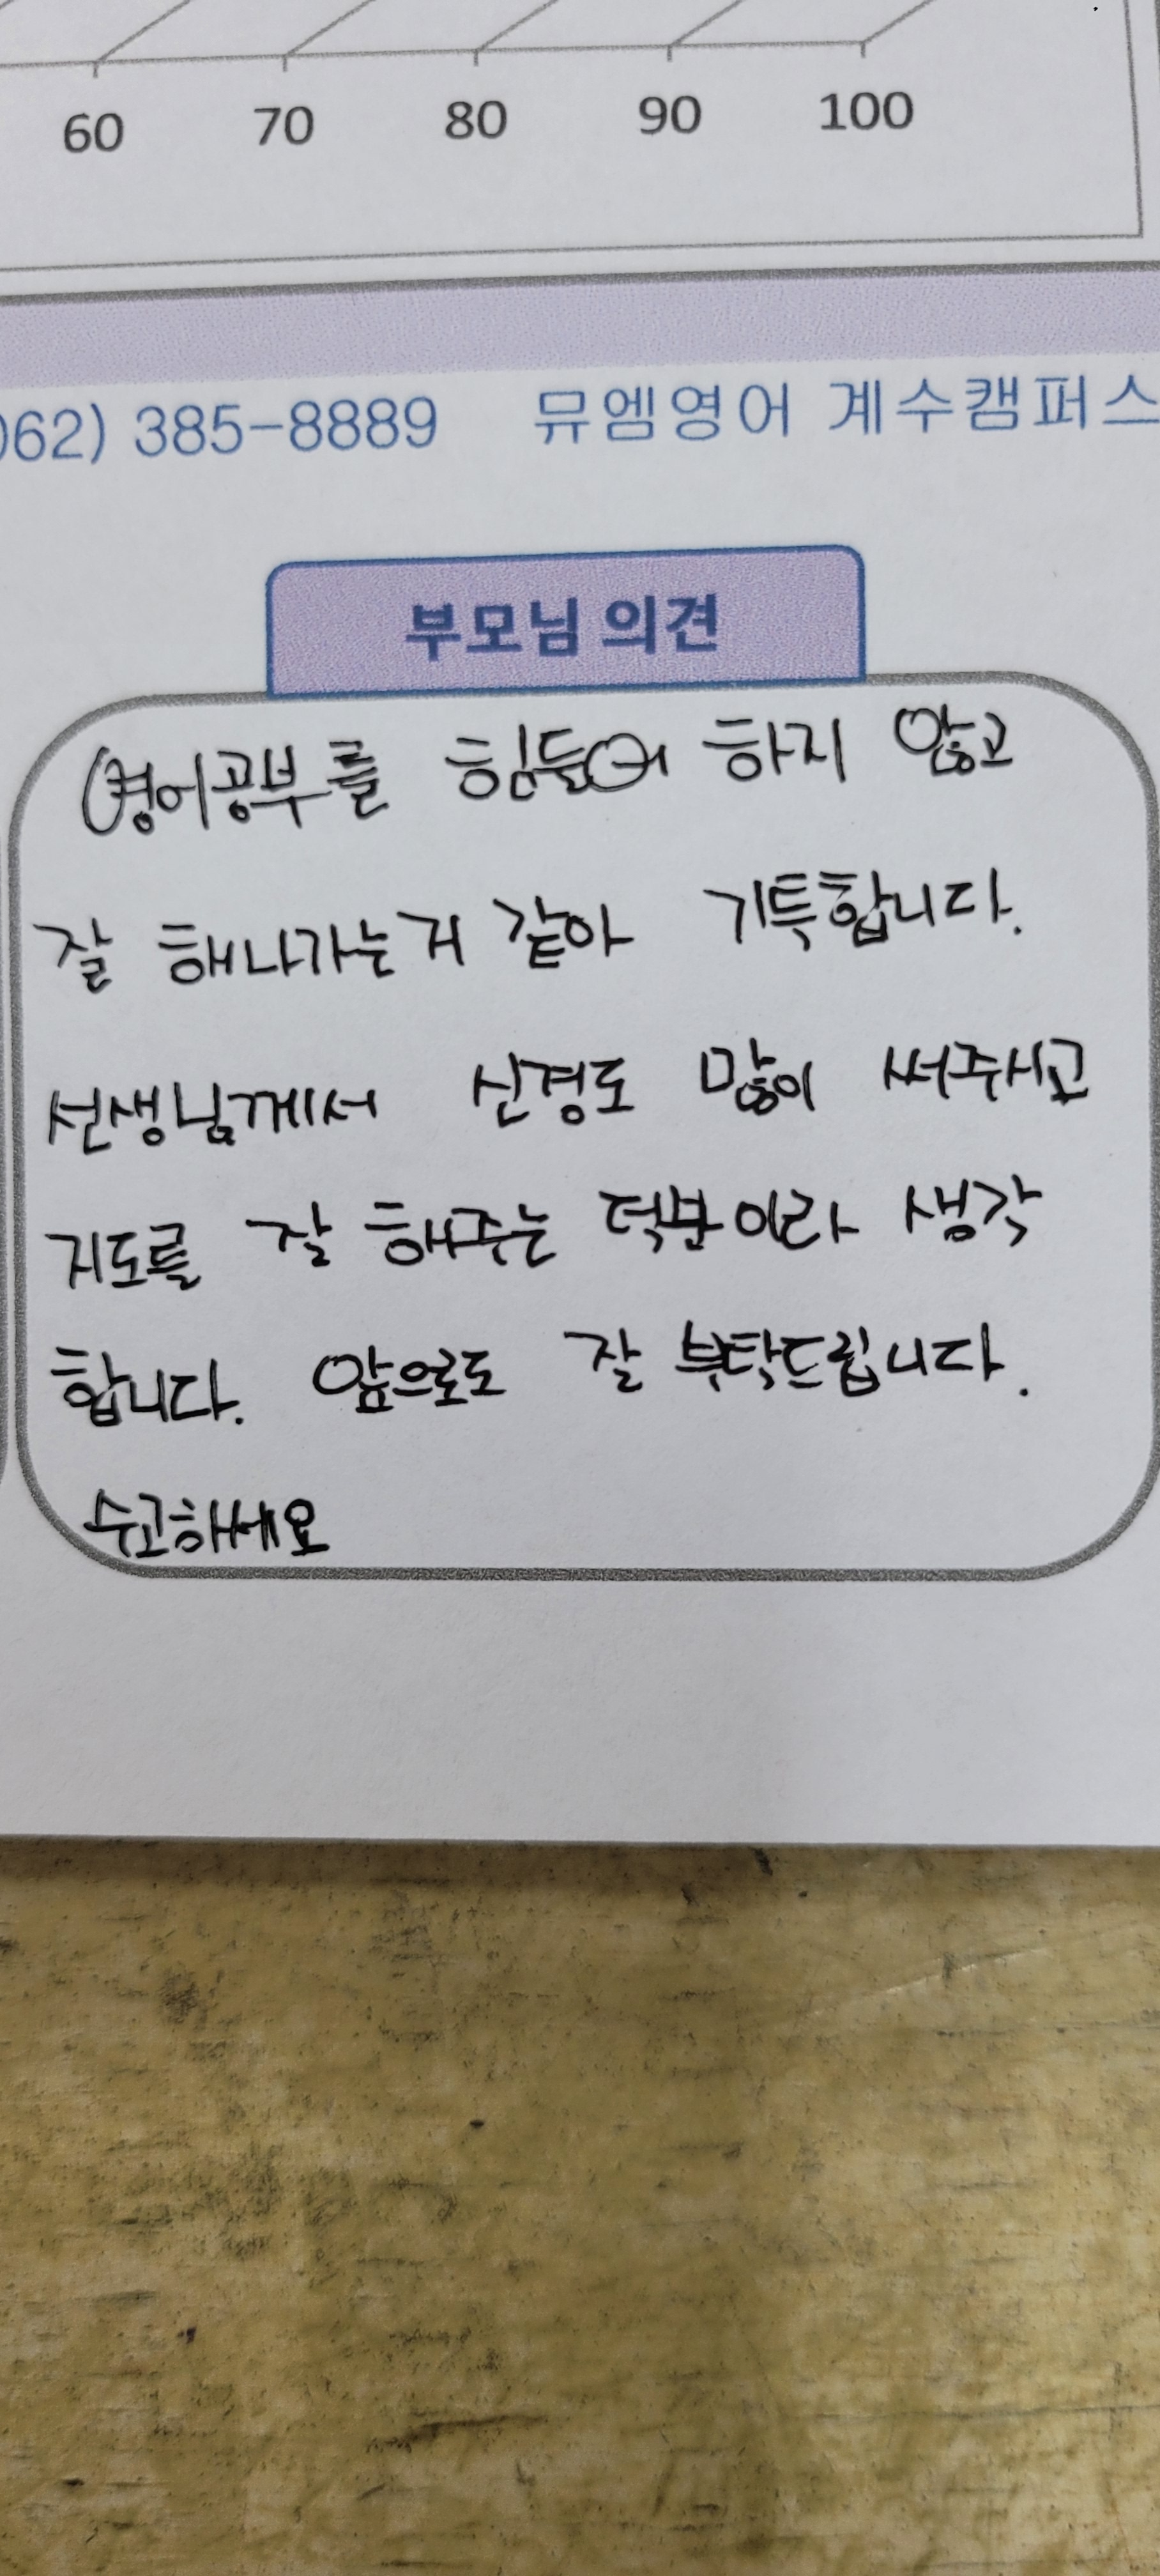 60 70 80 90 100
062) 385-8889 뮤엠영어 계수캠퍼스
부모님 의견
영어공부를 힘들어 하지 않고
잘 해나가는거 같아 기특합니다.
선생님께서 신경도 많이 써주시고
지도를 잘 해주는 덕분이라 생각
합니다. 앞으로도 잘 부탁드립니다.
수고하세요